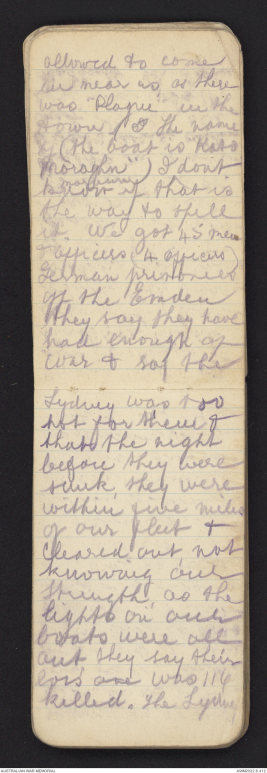 allowed to come
in near us as there
was "Plague" in the
town / The name
of (the boat is "Kato
Moroghn") I dont
know if that is
the way to spell
it. We got 45 men
& officers (4 officers)
German prisonies
of the Emden
they say they have
had enough of
war & say the
Sydney was too
hot for them &
that the night
before they were
sunk they were
within five miles
of our fleet &
cleared out not
knowing our
strength as the
lights on our
boats were all
out they say their
loss was 116
killed. The Sydney
AUSTRALIAN WAR MEMORIAL